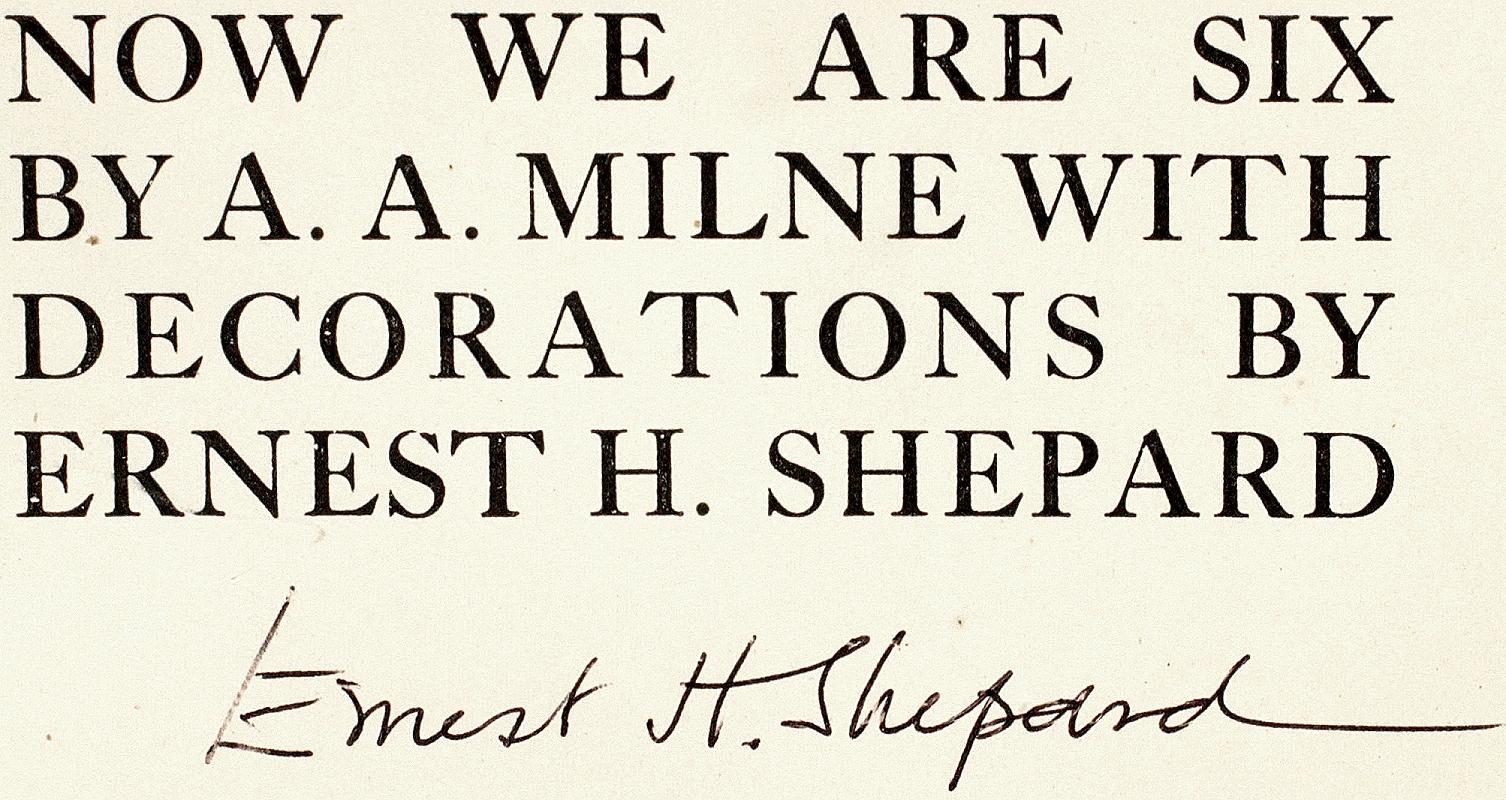 NOW WE ARE SIX
BY A. A. MILNE WITH
DECORATIONS BY
ERNEST H. SHEPARD
Ernest H. Shepard